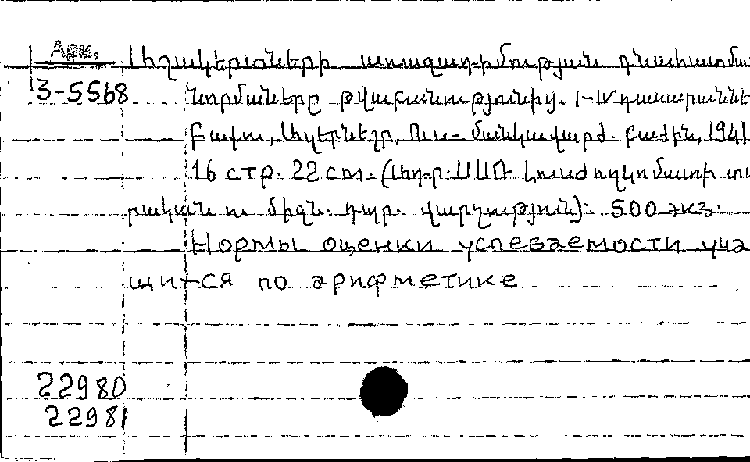 Арм.
Աշակերտների առաջադիմության գնահատմա
3-5568 նորմաները թվաբանությունից. I-IV դասարաննե
Բաքու, Ազերնեշր, Ուս- մանկավարժ. բաժին, 1941
16 стр. 22 см. (Ադր. ՍՍՌ Լուսժողկոմատի տա
րական ու միջն. դպր. վարչություն): 500 экз.
Нормы оценки успеваемости уча
щихся по арифметике
22980
22981